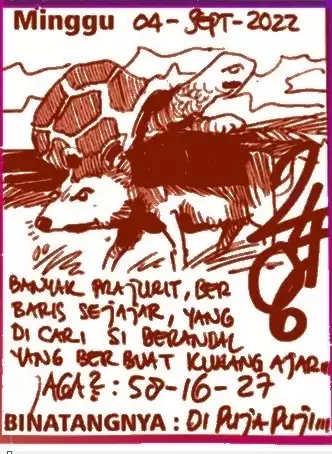 Minggu 04-SEPT-2022
BANYAK PRAJURIT, BER
BARIS SEJAJAR, YANG
DI CARI SI BERANDAL
YANG BERBUAT KURANG AJAR!!!
JAGA2 : 58-16-27
BINATANGNYA : DI PUJA PUJI!!!